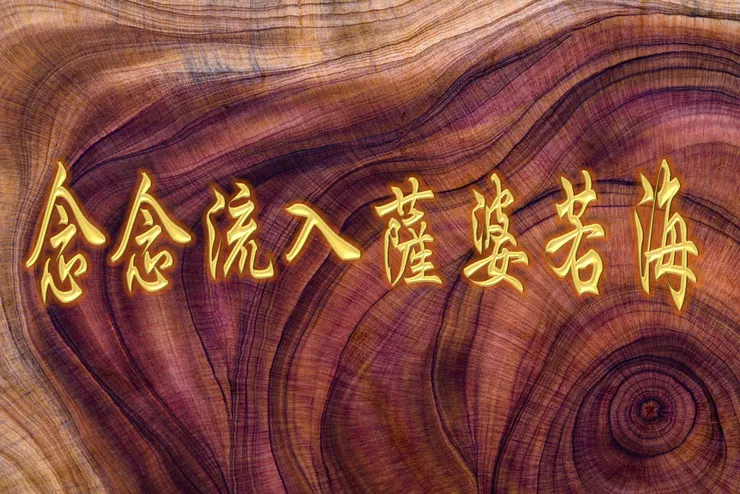 念念流入薩婆若海